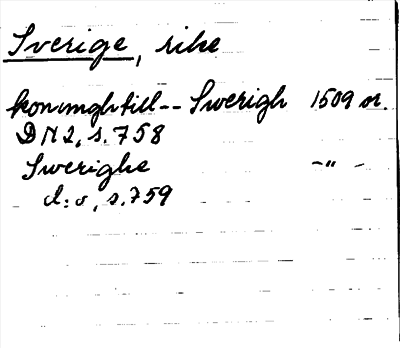 Sverige, rike
konungh till -- Swerigh 1509 or.
DN 2, s. 758
Swerighe -"-
d:o, s. 759